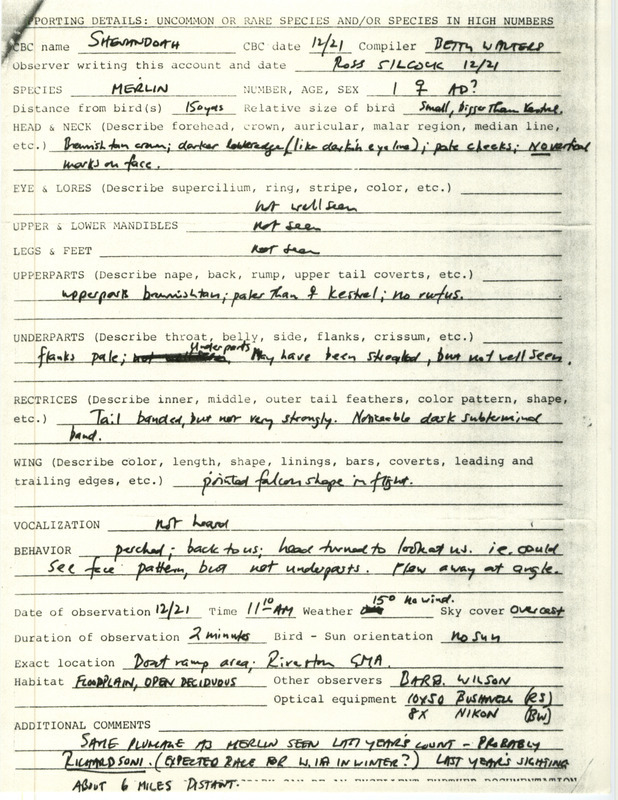 PORTING DETAILS: UNCOMMON OR RARE SPECIES AND/OR SPECIES IN HIGH NUMBERS
CBC name SHENANDOAH CBC date 12/21 Compiler BETTY WALTERS
Observer writing this account and date ROSS SILCOCK 12/21
SPECIES MERLIN NUMBER, AGE, SEX 1 ♀ AD?
Distance from bird(s) 150yds Relative size of bird Small, bigger than Kestrel.
HEAD & NECK (Describe forehead, crown, auricular, malar region, median line,
etc.) Brownish tan crown; darker lower edge (like darkish eyeline); pale cheeks; NO vertical
marks on face.
EYE & LORES (Describe supercilium, ring, stripe, color, etc.)
not well seen
UPPER & LOWER MANDIBLES not seen
LEGS & FEET not seen
UPPERPARTS (Describe nape, back, rump, upper tail coverts, etc.)
upperparts brownish tan; paler than ♀ Kestrel; no rufus.
UNDERPARTS (Describe throat, belly, side, flanks, crissum, etc.)
flanks pale; Underparts May have been streaked, but not well seen.
RECTRICES (Describe inner, middle, outer tail feathers, color pattern, shape,
etc.) Tail banded, but not very strongly. Noticeable dark subterminal
band.
WING (Describe color, length, shape, linings, bars, coverts, leading and
trailing edges, etc.) pointed falcon shape in flight.
VOCALIZATION not heard
BEHAVIOR perched; back to us; head turned to look at us. i.e. could
see face pattern, but not underparts. Flew away at angle.
Date of observation 12/21 Time 11 10 AM Weather 15° no wind. Sky cover Overcast
Duration of observation 2 minutes Bird - Sun orientation no sun
Exact location Boat ramp area; Riverton GMA.
Habitat FLOODPLAIN, OPEN DECIDUOUS Other observers BARB. WILSON
Optical equipment 10x50 BUSHNELL (RS)
8X NIKON (BW)
ADDITIONAL COMMENTS
SAME PLUMAGE AS MERLIN SEEN LAST YEAR'S COUNT - PROBABLY
RICHARDSONI. (EXPECTED RACE FOR W. IA IN WINTER?) LAST YEAR'S SIGHTING
ABOUT 6 MILES DISTANT.